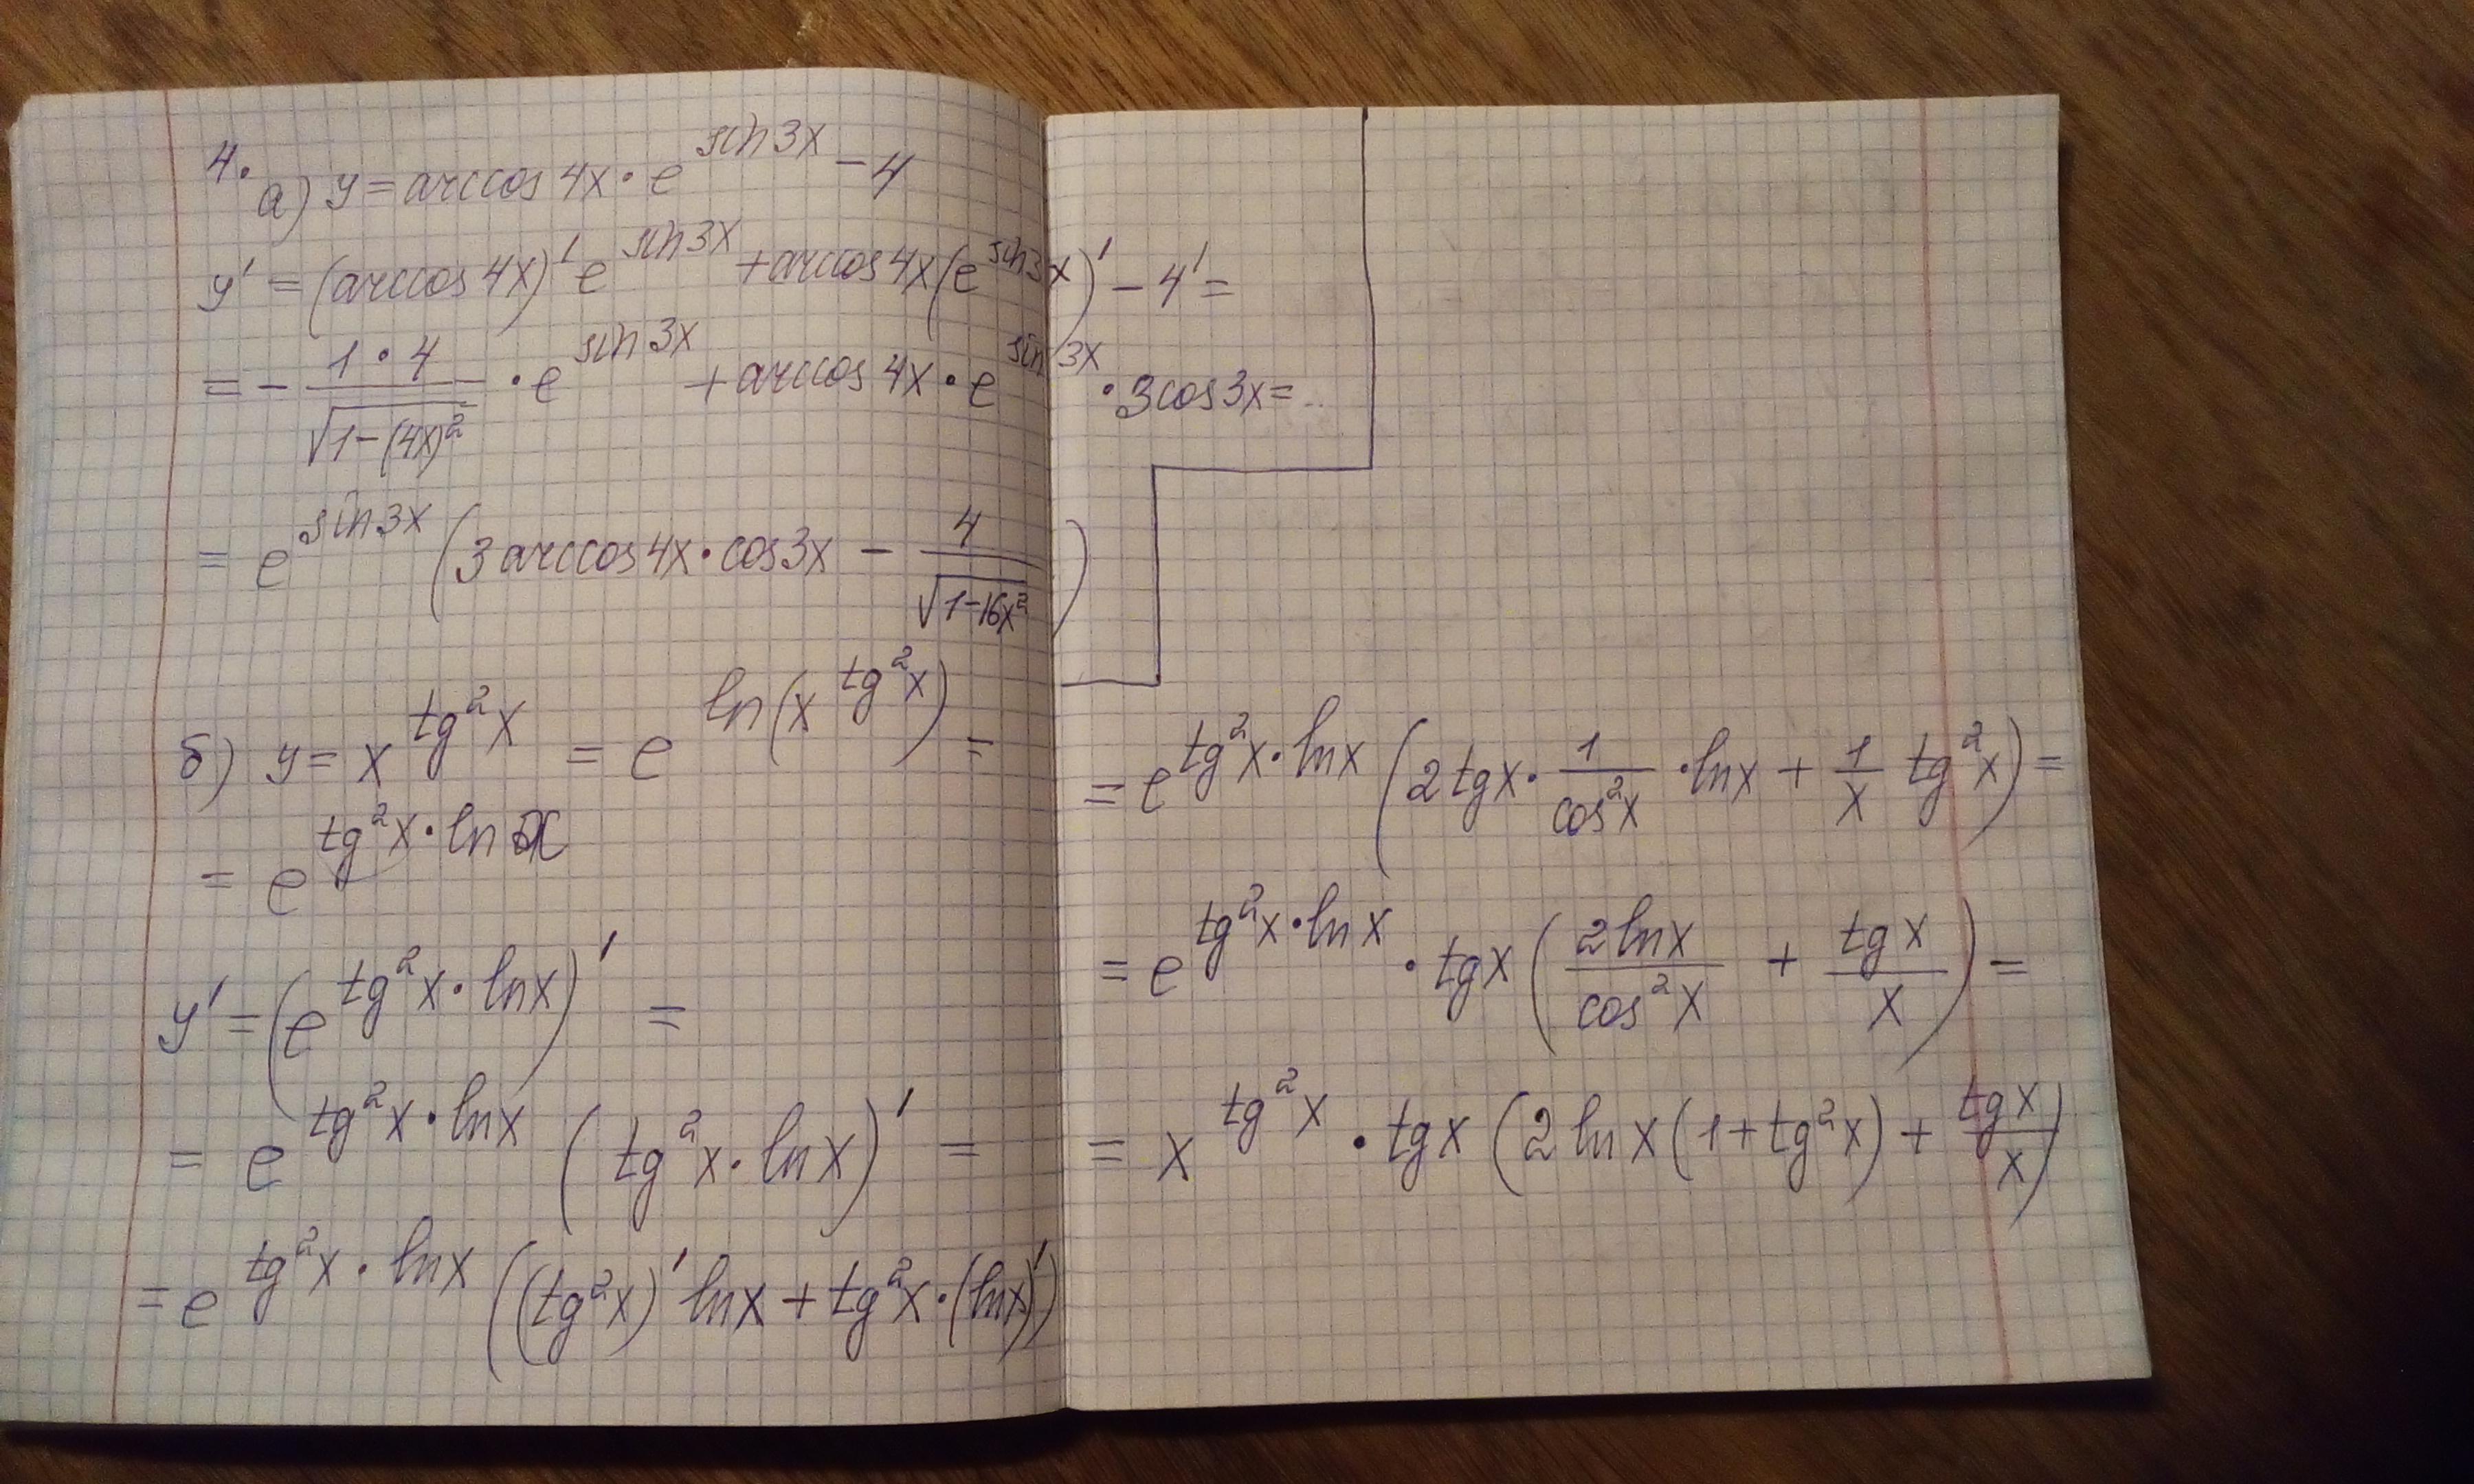 4.
а) y = arccos 4x · e^(sin 3x) − 4
y' = (arccos 4x)' e^(sin 3x) + arccos 4x (e^(sin 3x))' − 4' =
= − (1 · 4)/√(1−(4x)²) · e^(sin 3x) + arccos 4x · e^(sin 3x) · 3cos3x = ..
= e^(sin 3x) (3 arccos 4x · cos 3x − 4/√(1−16x²))
б) y = x^(tg²x) = e^(ln(x^(tg²x))) =
= e^(tg²x · ln x)
y' = (e^(tg²x · ln x))' =
= e^(tg²x · ln x) (tg²x · ln x)' =
= e^(tg²x · ln x) ((tg²x)' ln x + tg²x · (ln x)')
= e^(tg²x · ln x) (2 tg x · 1/cos²x · ln x + 1/x tg²x) =
= e^(tg²x · ln x) · tg x (2 ln x/cos²x + tg x/x) =
= x^(tg²x) · tg x (2 ln x (1 + tg²x) + tg x/x)